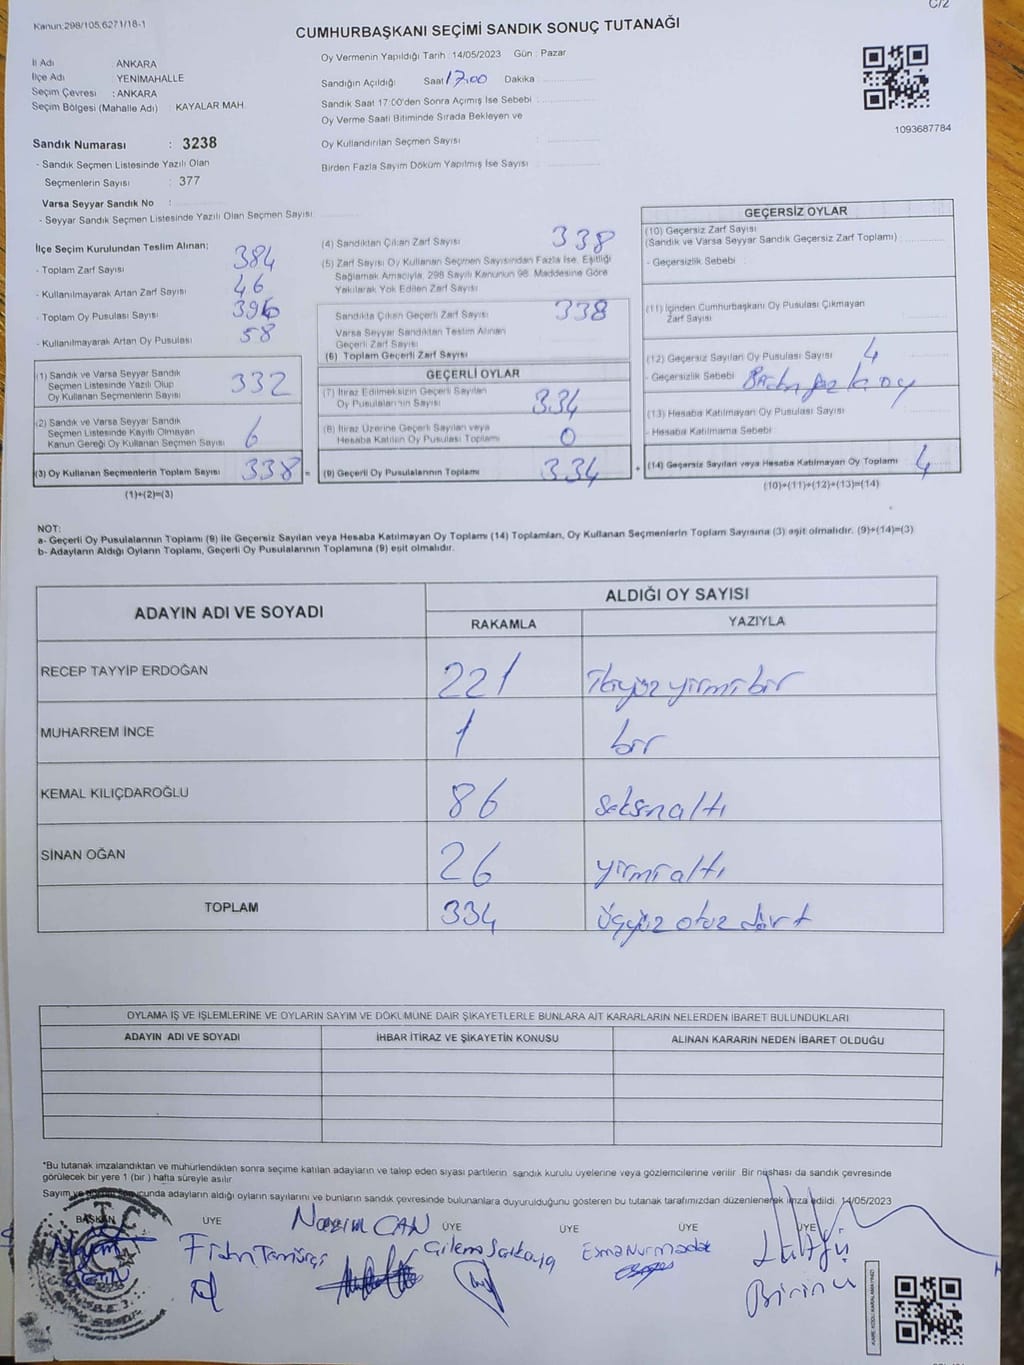 C/2
Kanun:298/105,6271/18-1
CUMHURBAŞKANI SEÇİMİ SANDIK SONUÇ TUTANAĞI
İl Adı ANKARA
İlçe Adı YENİMAHALLE
Seçim Çevresi : ANKARA
Seçim Bölgesi (Mahalle Adı) : KAYALAR MAH.
Oy Vermenin Yapıldığı Tarih : 14/05/2023 Gün : Pazar
Sandığın Açıldığı Saat 17:00 Dakika :
Sandık Saat 17:00'den Sonra Açımış İse Sebebi :
Oy Verme Saati Bitiminde Sırada Bekleyen ve
Oy Kullandırılan Seçmen Sayısı :
Birden Fazla Sayım Döküm Yapılmış İse Sayısı :
1093687784
Sandık Numarası : 3238
- Sandık Seçmen Listesinde Yazılı Olan
Seçmenlerin Sayısı : 377
Varsa Seyyar Sandık No :
- Seyyar Sandık Seçmen Listesinde Yazılı Olan Seçmen Sayısı:
İlçe Seçim Kurulundan Teslim Alınan:
- Toplam Zarf Sayısı 384
- Kullanılmayarak Artan Zarf Sayısı 46
- Toplam Oy Pusulası Sayısı 396
- Kullanılmayarak Artan Oy Pusulası 58
(1) Sandık ve Varsa Seyyar Sandık
Seçmen Listesinde Yazılı Olup
Oy Kullanan Seçmenlerin Sayısı 332
(2) Sandık ve Varsa Seyyar Sandık
Seçmen Listesinde Kayıtlı Olmayan
Kanun Gereği Oy Kullanan Seçmen Sayısı 6
(3) Oy Kullanan Seçmenlerin Toplam Sayısı 338 =
(1)+(2)=(3)
(4) Sandıktan Çıkan Zarf Sayısı 338
(5) Zarf Sayısı Oy Kullanan Seçmen Sayısından Fazla İse, Eşitliği
Sağlamak Amacıyla, 298 Sayılı Kanunun 98. Maddesine Göre
Yakılarak Yok Edilen Zarf Sayısı
Sandıkta Çıkan Geçerli Zarf Sayısı 338
Varsa Seyyar Sandıktan Teslim Alınan
Geçerli Zarf Sayısı
(6) Toplam Geçerli Zarf Sayısı
GEÇERLİ OYLAR
(7) İtiraz Edilmeksizin Geçerli Sayılan
Oy Pusulalarının Sayısı 334
(8) İtiraz Üzerine Geçerli Sayılan veya
Hesaba Katılan Oy Pusulası Toplamı 0
(9) Geçerli Oy Pusulalarının Toplamı 334 +
GEÇERSİZ OYLAR
(10) Geçersiz Zarf Sayısı
(Sandık ve Varsa Seyyar Sandık Geçersiz Zarf Toplamı) :
- Geçersizlik Sebebi :
(11) İçinden Cumhurbaşkanı Oy Pusulası Çıkmayan
Zarf Sayısı
(12) Geçersiz Sayılan Oy Pusulası Sayısı 4
- Geçersizlik Sebebi :
(13) Hesaba Katılmayan Oy Pusulası Sayısı
- Hesaba Katılmama Sebebi
(14) Geçersiz Sayılan veya Hesaba Katılmayan Oy Toplamı 4
(10)+(11)+(12)+(13)=(14)
NOT:
a- Geçerli Oy Pusulalarının Toplamı (9) ile Geçersiz Sayılan veya Hesaba Katılmayan Oy Toplamı (14) Toplamları, Oy Kullanan Seçmenlerin Toplam Sayısına (3) eşit olmalıdır. (9)+(14)=(3)
b- Adayların Aldığı Oyların Toplamı, Geçerli Oy Pusulalarının Toplamına (9) eşit olmalıdır.
ADAYIN ADI VE SOYADI ALDIĞI OY SAYISI
RAKAMLA YAZIYLA
RECEP TAYYİP ERDOĞAN 221 İkiyüz yirmi bir
MUHARREM İNCE 1 bir
KEMAL KILIÇDAROĞLU 86 seksen altı
SİNAN OĞAN 26 yirmi altı
TOPLAM 334 üçyüz otuz dört
OYLAMA İŞ VE İŞLEMLERİNE VE OYLARIN SAYIM VE DÖKÜMÜNE DAİR ŞİKAYETLERLE BUNLARA AİT KARARLARIN NELERDEN İBARET BULUNDUKLARI
ADAYIN ADI VE SOYADI İHBAR İTİRAZ VE ŞİKAYETİN KONUSU ALINAN KARARIN NEDEN İBARET OLDUĞU
*Bu tutanak imzalandıktan ve mühürlendikten sonra seçime katılan adayların ve talep eden siyasi partilerin sandık kurulu üyelerine veya gözlemcilerine verilir. Bir nüshası da sandık çevresinde
görülecek bir yere 1 (bir) hafta süreyle asılır.
Sayım ve döküm sonucunda adayların aldığı oyların sayılarını ve bunların sandık çevresinde bulunanlara duyurulduğunu gösteren bu tutanak tarafımızdan düzenlenerek imza edildi. 14/05/2023
BAŞKAN ÜYE ÜYE ÜYE ÜYE ÜYE
Nazım CAN
Lütfü
Birinci
KARE KODU KARALAMAYINIZ!